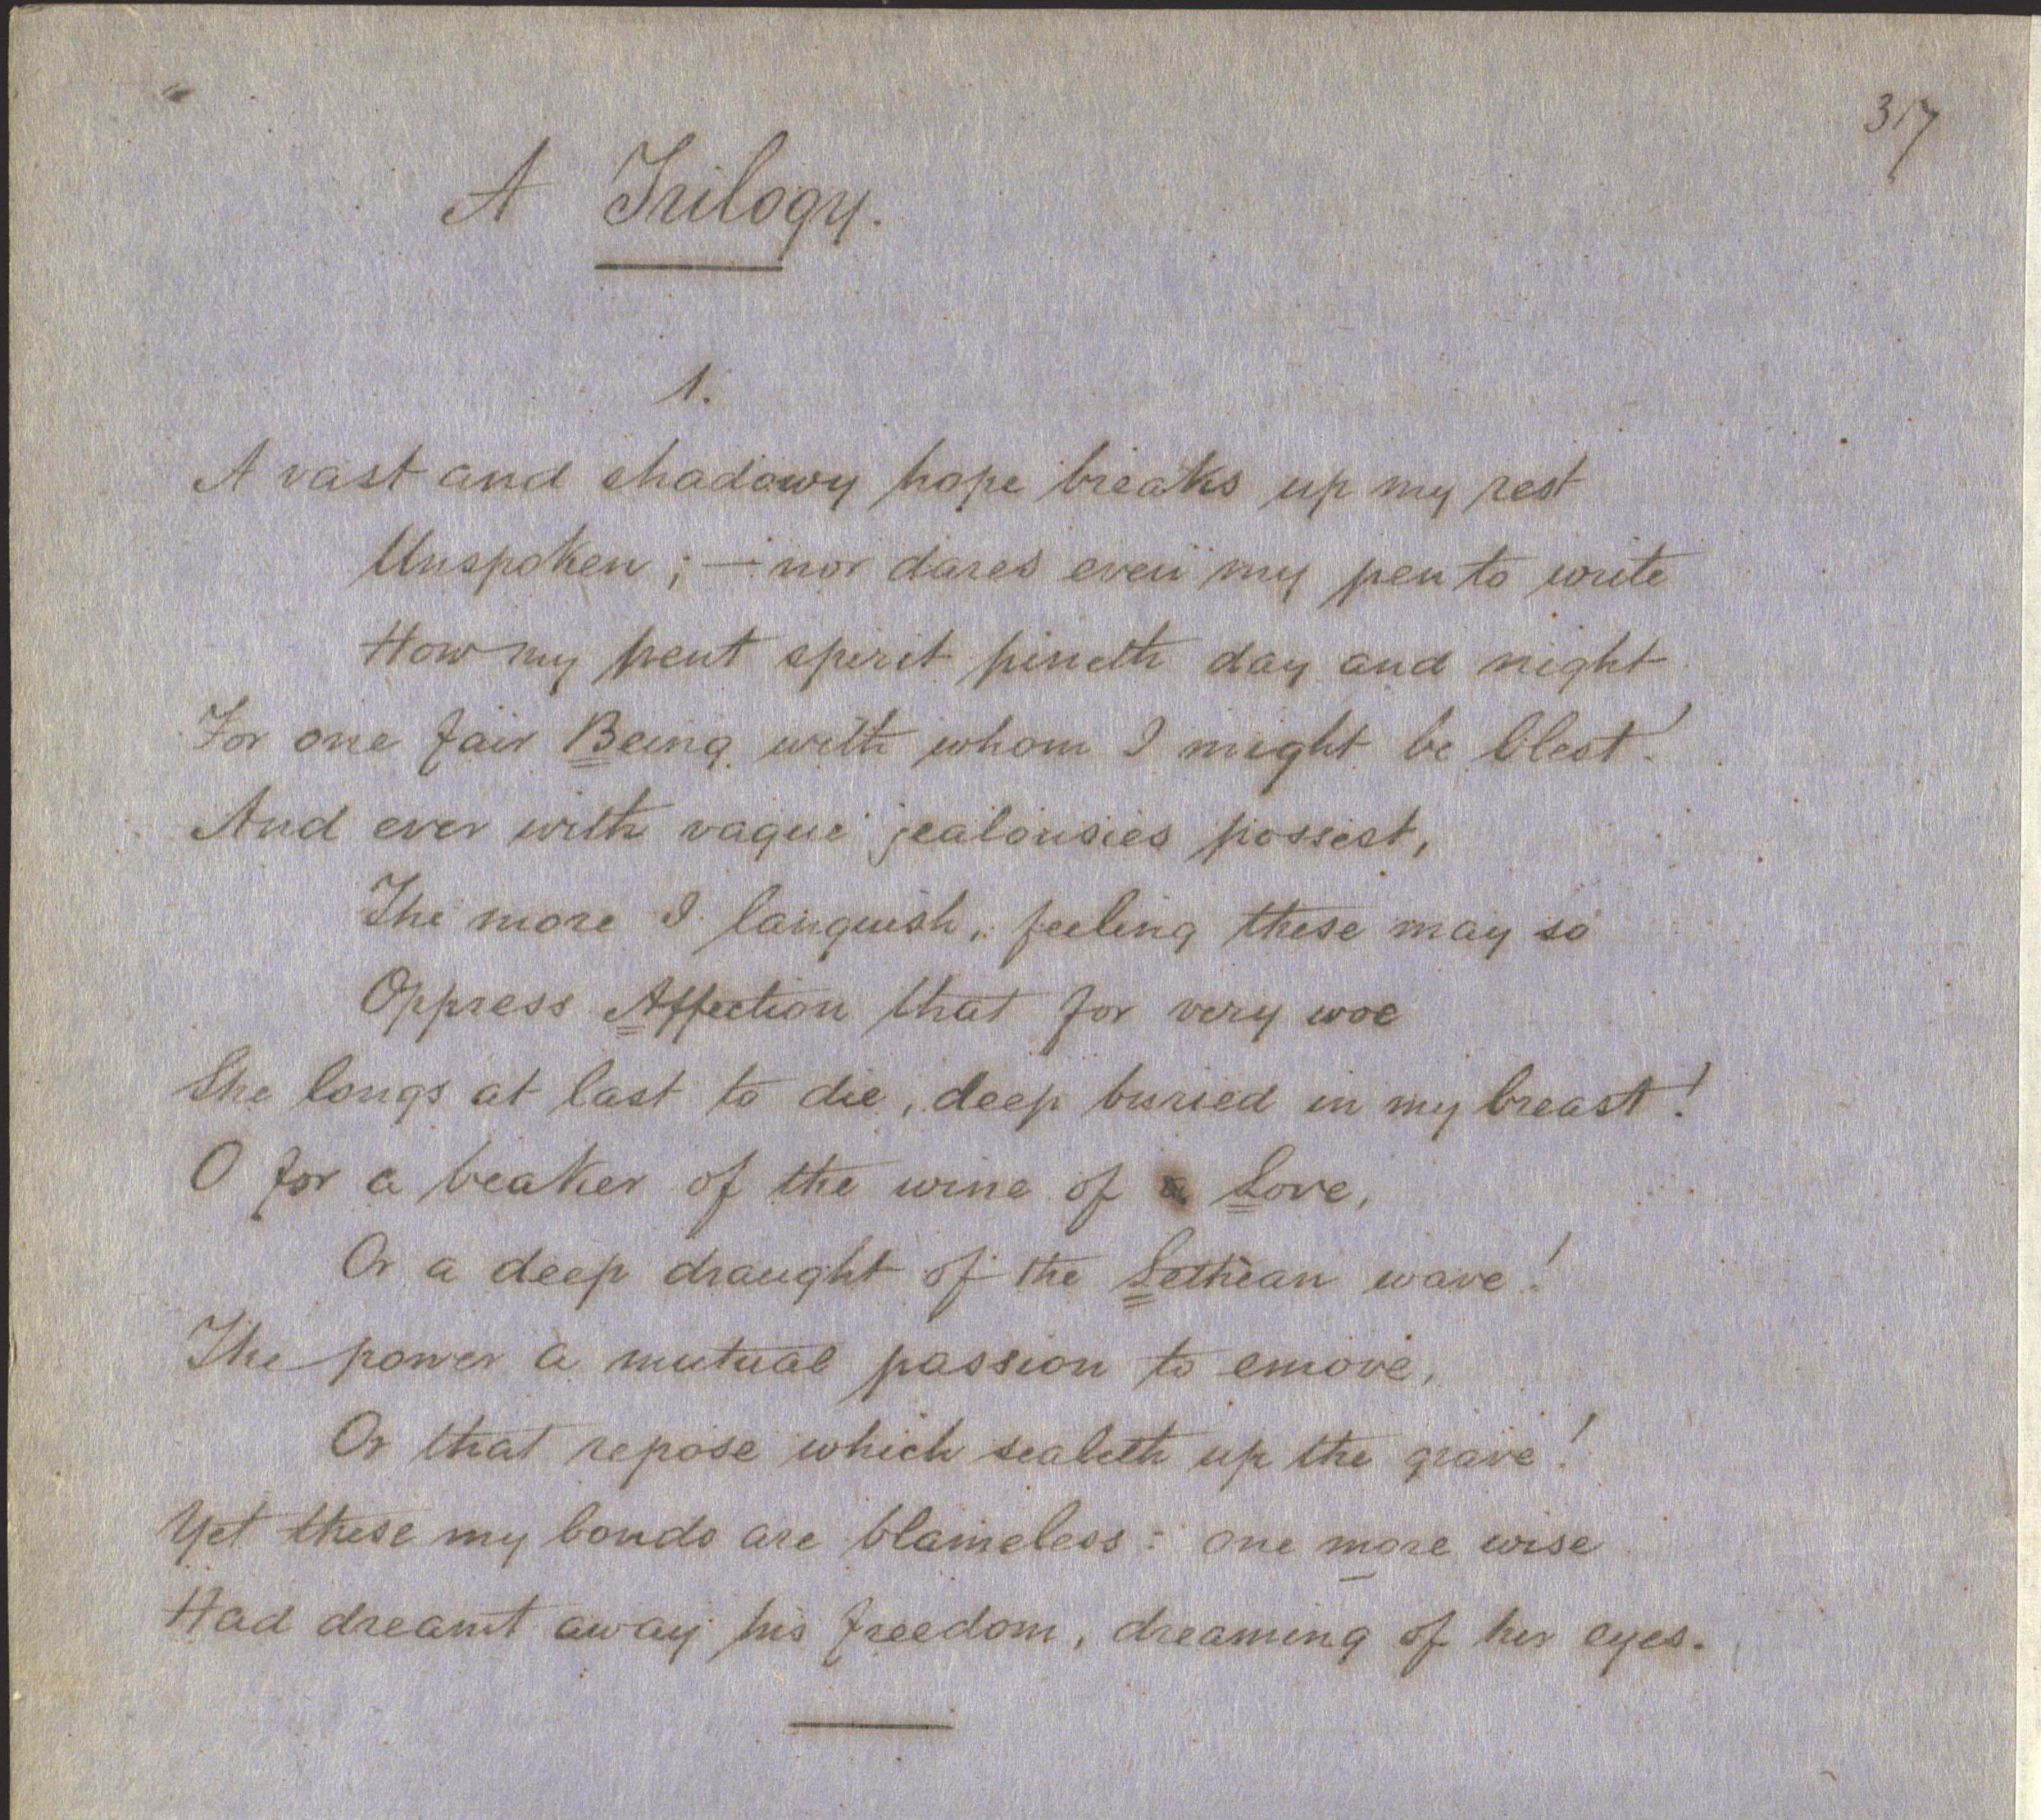 317
A Trilogy.
1.
A vast and shadowy hope breaks up my rest
Unspoken; — nor dares even my pen to write
How my pent spirit pineth day and night
For one fair Being with whom I might be blest!
And ever with vague jealousies possest,
The more I languish, feeling these may so
Oppress Affection that for very woe
She longs at last to die, deep buried in my breast!
O for a beaker of the wine of Love,
Or a deep draught of the Lethean wave!
The power a mutual passion to emove,
Or that repose which sealeth up the grave!
Yet these my bonds are blameless: one more wise
Had dreamt away his freedom, dreaming of her eyes.